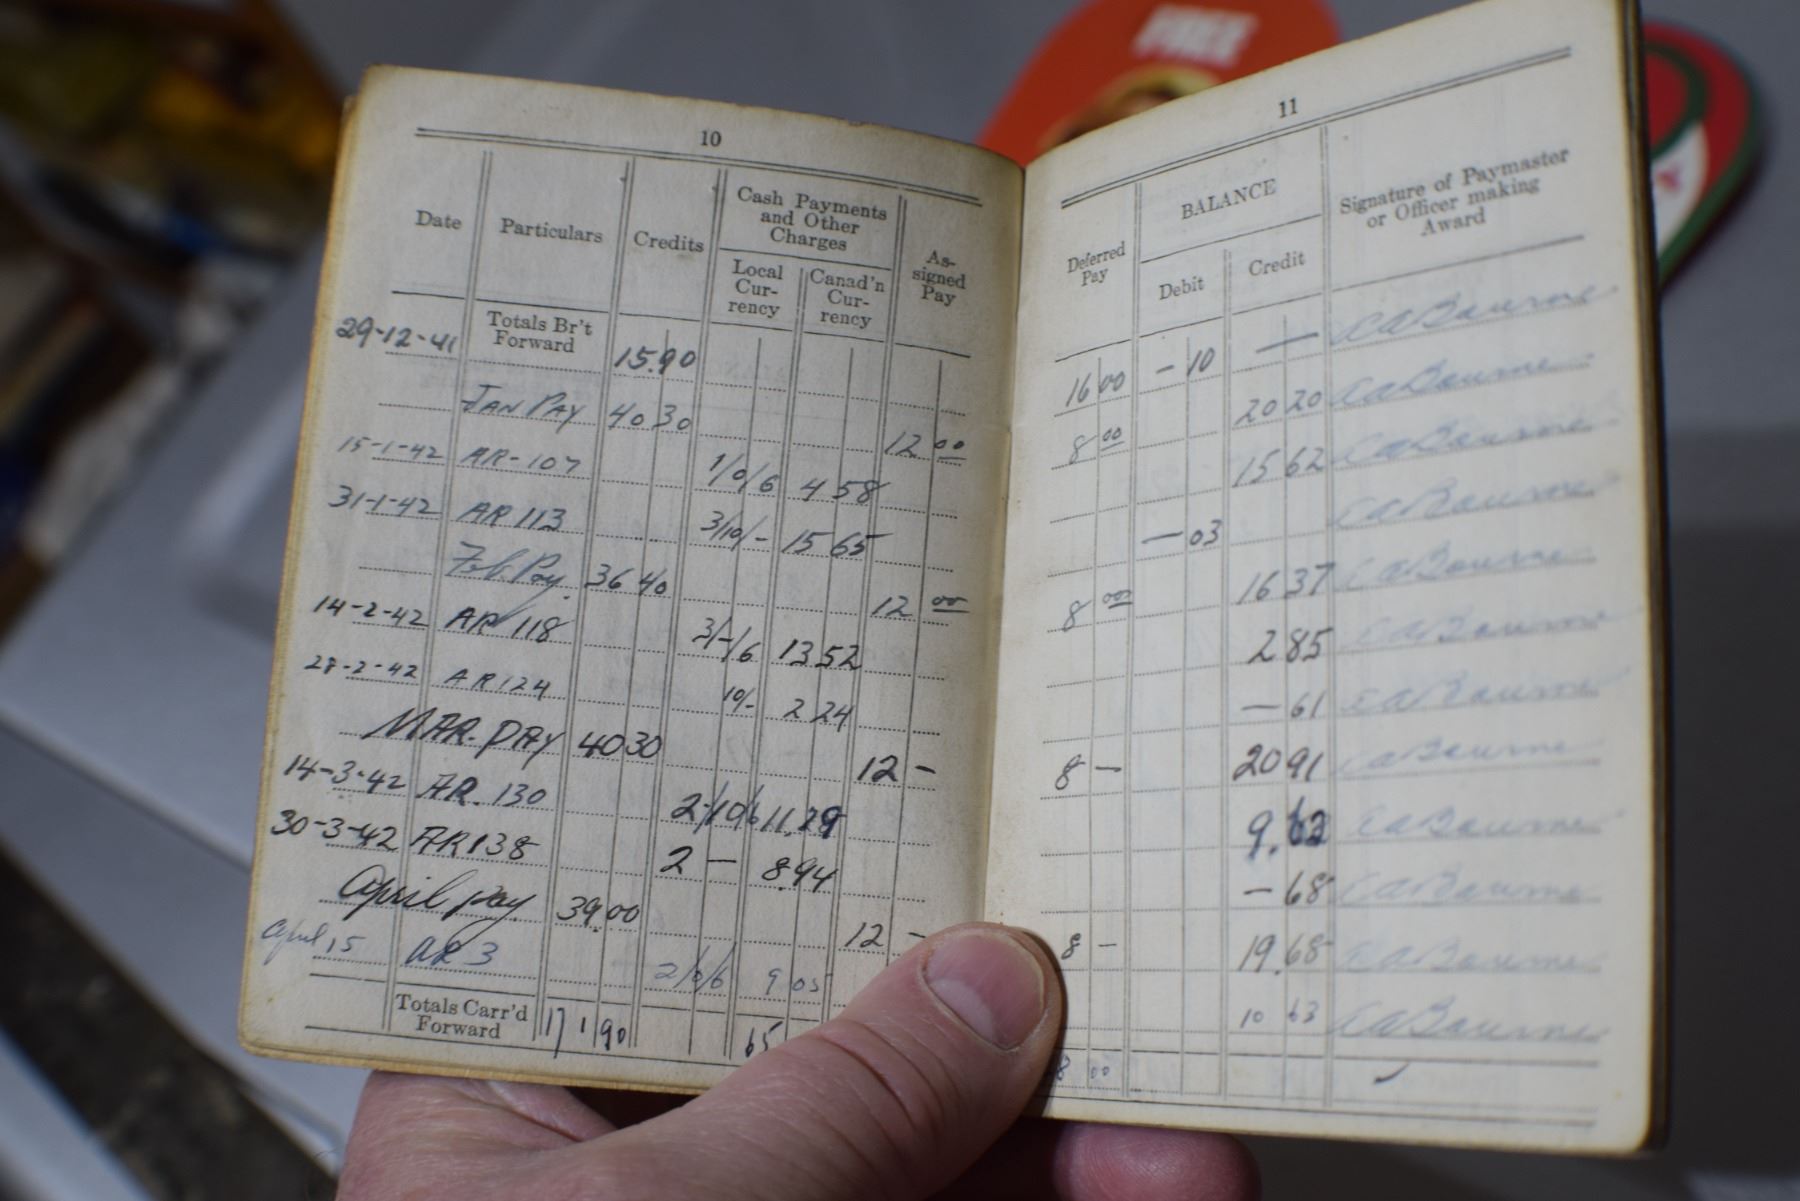 FREE
10
Date Particulars Credits Cash Payments and Other Charges Assigned Pay
Local Currency Canad'n Currency
29-12-41 Totals Br't Forward 15.90
Jan Pay 40 30 12 00
15-1-42 AR-107 1/0/6 4 58
31-1-42 AR 113 3/10/- 15 65
Feb Pay. 36 40 12 00
14-2-42 AR 118 3/-/6 13 52
28-2-42 AR 124 10/- 2 24
MAR. PAY 40 30 12 -
14-3-42 AR. 130 2/10/6 11.29
30-3-42 AR 138 2 - 8.94
April pay 39.00 12 -
April 15 AR 3 2/0/6 9 05
Totals Carr'd Forward 171 90 65
11
Deferred Pay BALANCE Signature of Paymaster or Officer making Award
Debit Credit
16 00 - 10 — E A Bourne
8 00 20 20 E A Bourne
15 62 E A Bourne
- 03 E A Bourne
8 00 16 37 E A Bourne
2 85 E A Bourne
- 61 E A Bourne
8 - 20 91 E A Bourne
9.62 E A Bourne
- 68 E A Bourne
8 - 19.68 E A Bourne
10 63 E A Bourne
8 00